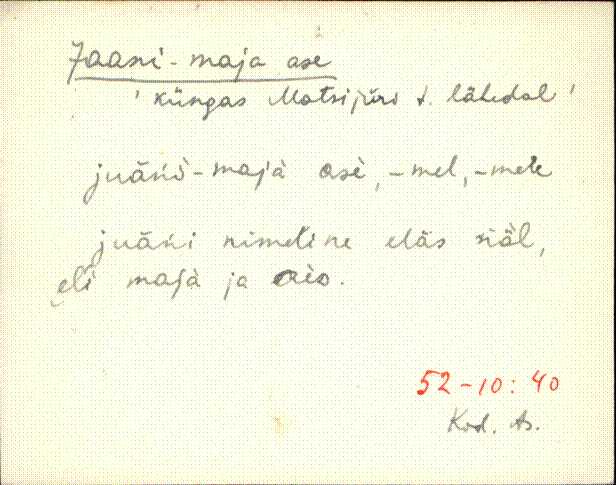 Jaani-maja ase
'küngas Matsijüri t. lähedal'
juäni-majà asè, -mel, -mele
juäni nimeline eläs siäl,
eli majà ja aèo.
52-10:40
Kod. As.